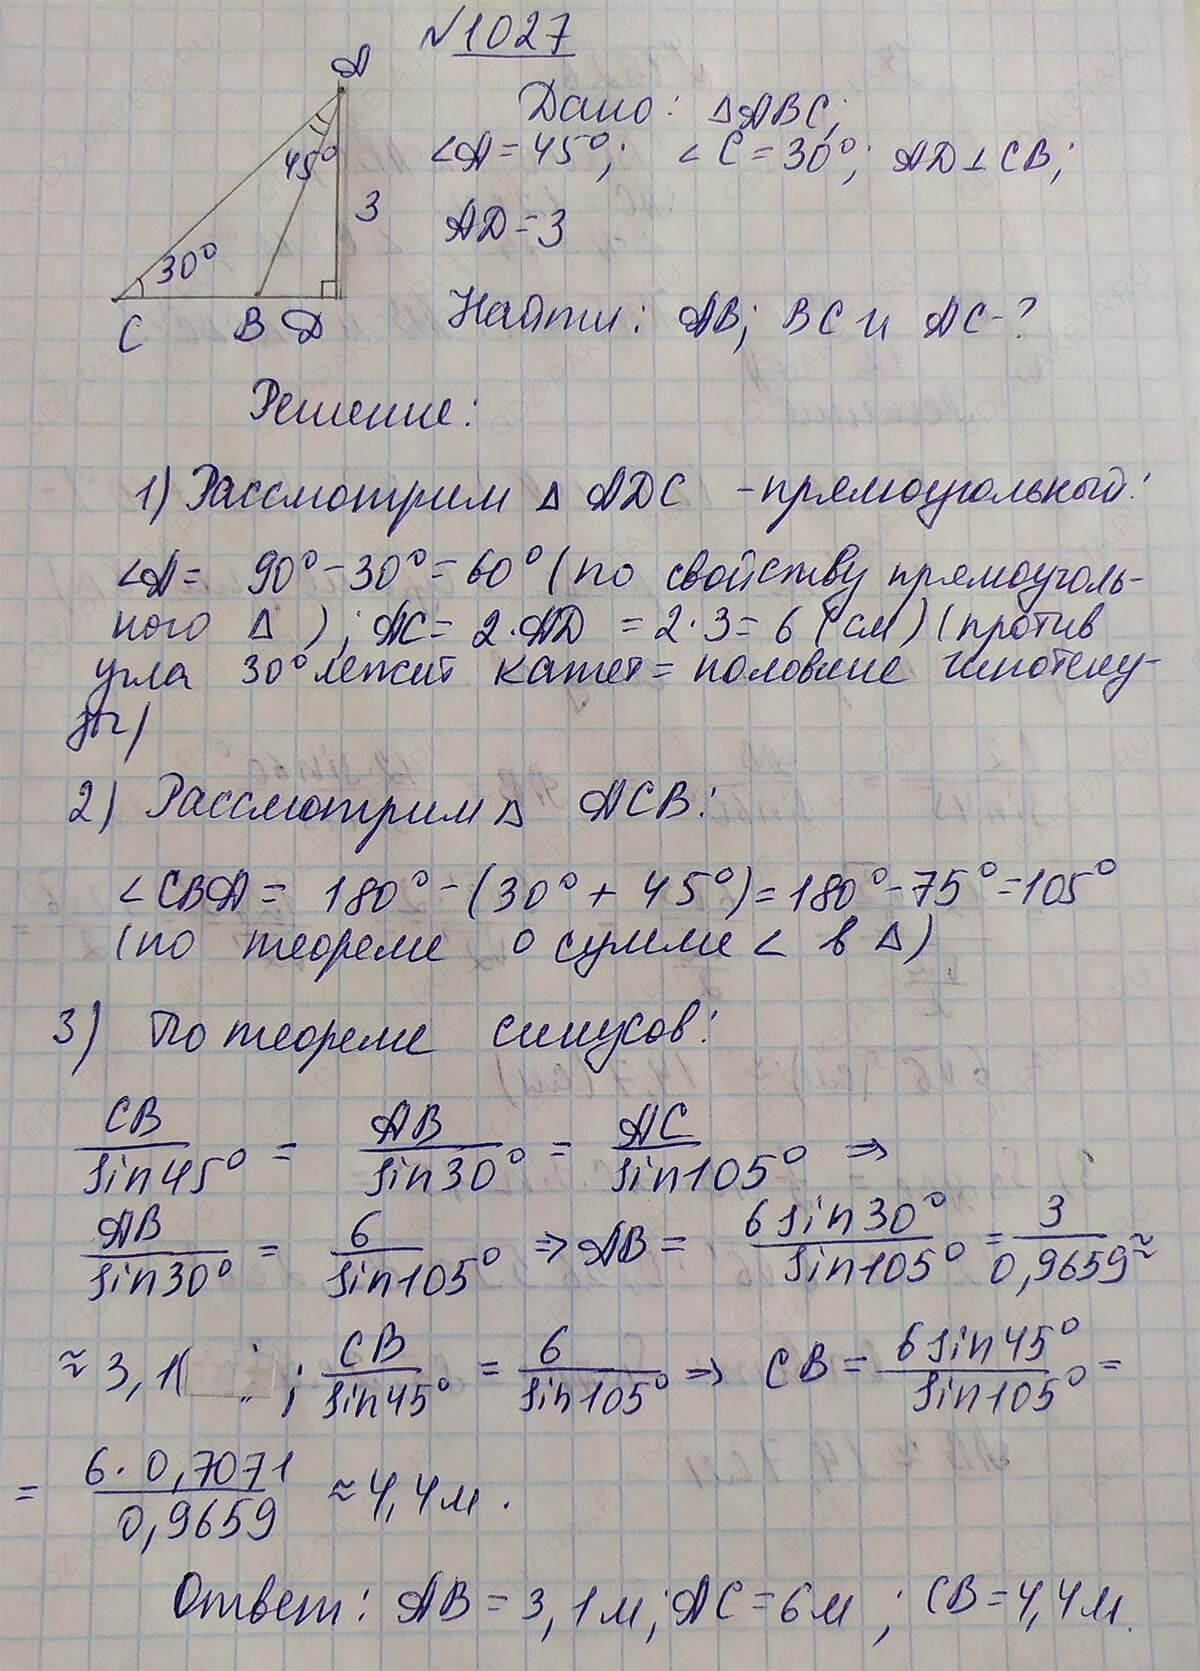 №1027
A
Дано: △ABC;
45°
∠A=45°; ∠C=30°; AD⊥CB;
3
AD=3
30°
C B D
Найти: AB; BC и AC-?
Решение:
1) Рассмотрим △ ADC -прямоугольный:
∠A= 90°-30°=60° (по свойству прямоуголь-
ного △); AC= 2·AD = 2·3= 6 (см) (против
угла 30° лежит катет = половине гипотену-
зы)
2) Рассмотрим △ ACB:
∠CBA= 180°-(30°+45°)=180°-75°=105°
(по теореме о сумме ∠ в △)
3) По теореме синусов:
CB/sin45° = AB/sin30° = AC/sin105° ⇒
AB/sin30° = 6/sin105° ⇒ AB = 6sin30°/sin105° = 3/0,9659 ≈
≈ 3,1 ; CB/sin45° = 6/sin105° ⇒ CB = 6sin45°/sin105° =
= 6·0,7071/0,9659 ≈4,4м.
Ответ: AB=3,1м; AC=6м ; CB=4,4м.